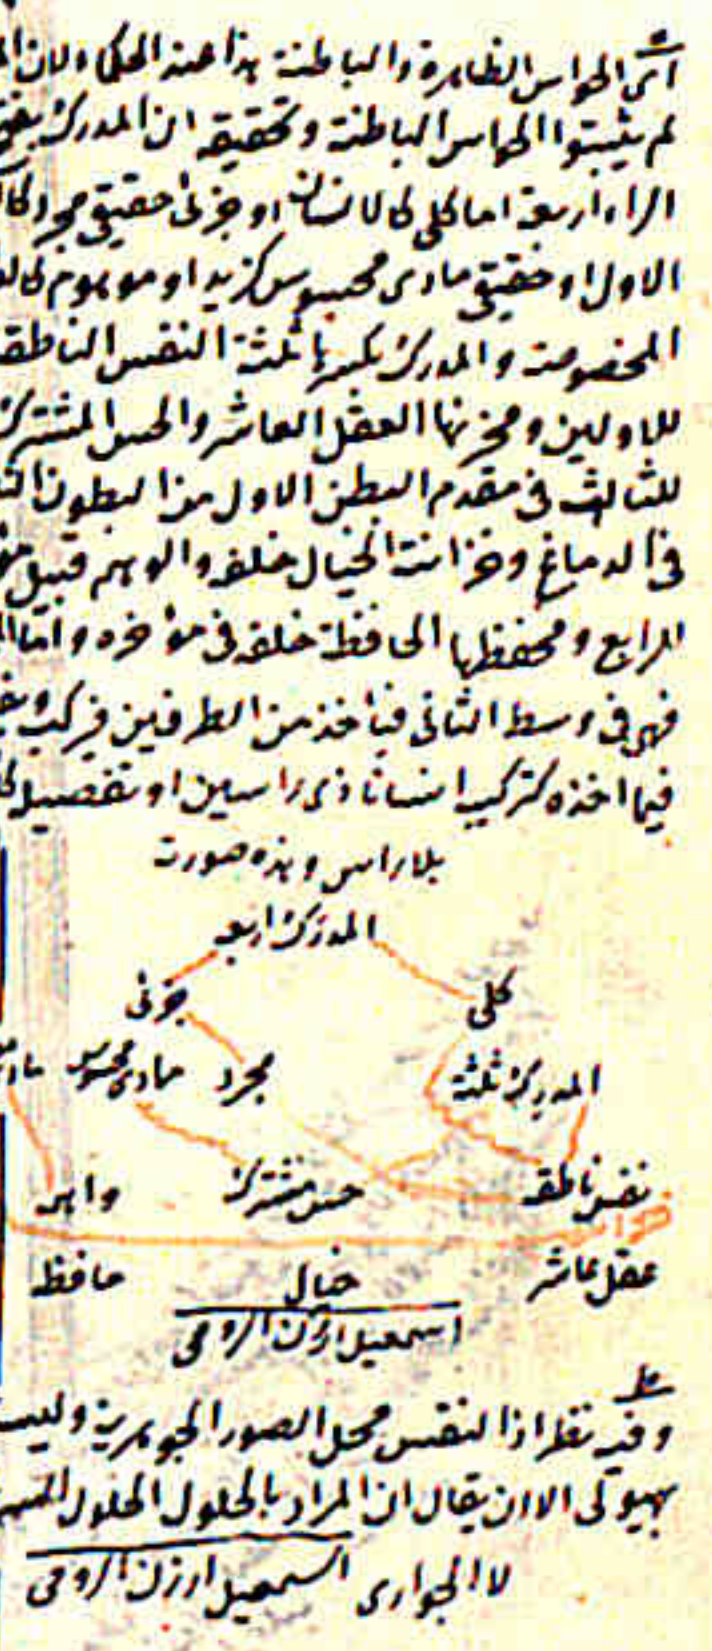 اى الحواس الظاهرة والباطنة هذا عند الحكماء ولان
لم يثبتوا الحواس الباطنة وتحقيقه ان المدرك بفتح
الراء اربعة اما كلى كالانسان او جزئى حقيقى مجرد
الاول او حقيقى مادى محسوس كزيد او موهوم
المخصوصة والمدرك بكسرها ثلثة النفس الناطقة
للاولين ومخزنها العقل العاشر والحس المشترك
للثالث فى مقدم البطن الاول من البطون
فى الدماغ وخزانته الخيال خلفه والوهم قبيل
الرابع ومحفظها الحافظة خلفه فى مؤخره واما
فهى فى وسط الثانى فيأخذ من الطرفين فيركب
فيما اخذه كتركيب انسانا ذى راسين او تفصيل
بلا راس وهذه صورته
المدرك اربعة
كلى جزئى
المدرك ثلثة مجرد مادى محسوس
نفس ناطقة حس مشترك واهمه
عقل عاشر خيال حافظه
اسمعيل ارزن الرومى
وفيه نظر اذ النفس محل الصور الجوهرية وليست
بهيولى الا ان يقال ان المراد بالحلول الحلول
لا الجوارى اسمعيل ارزن الرومى